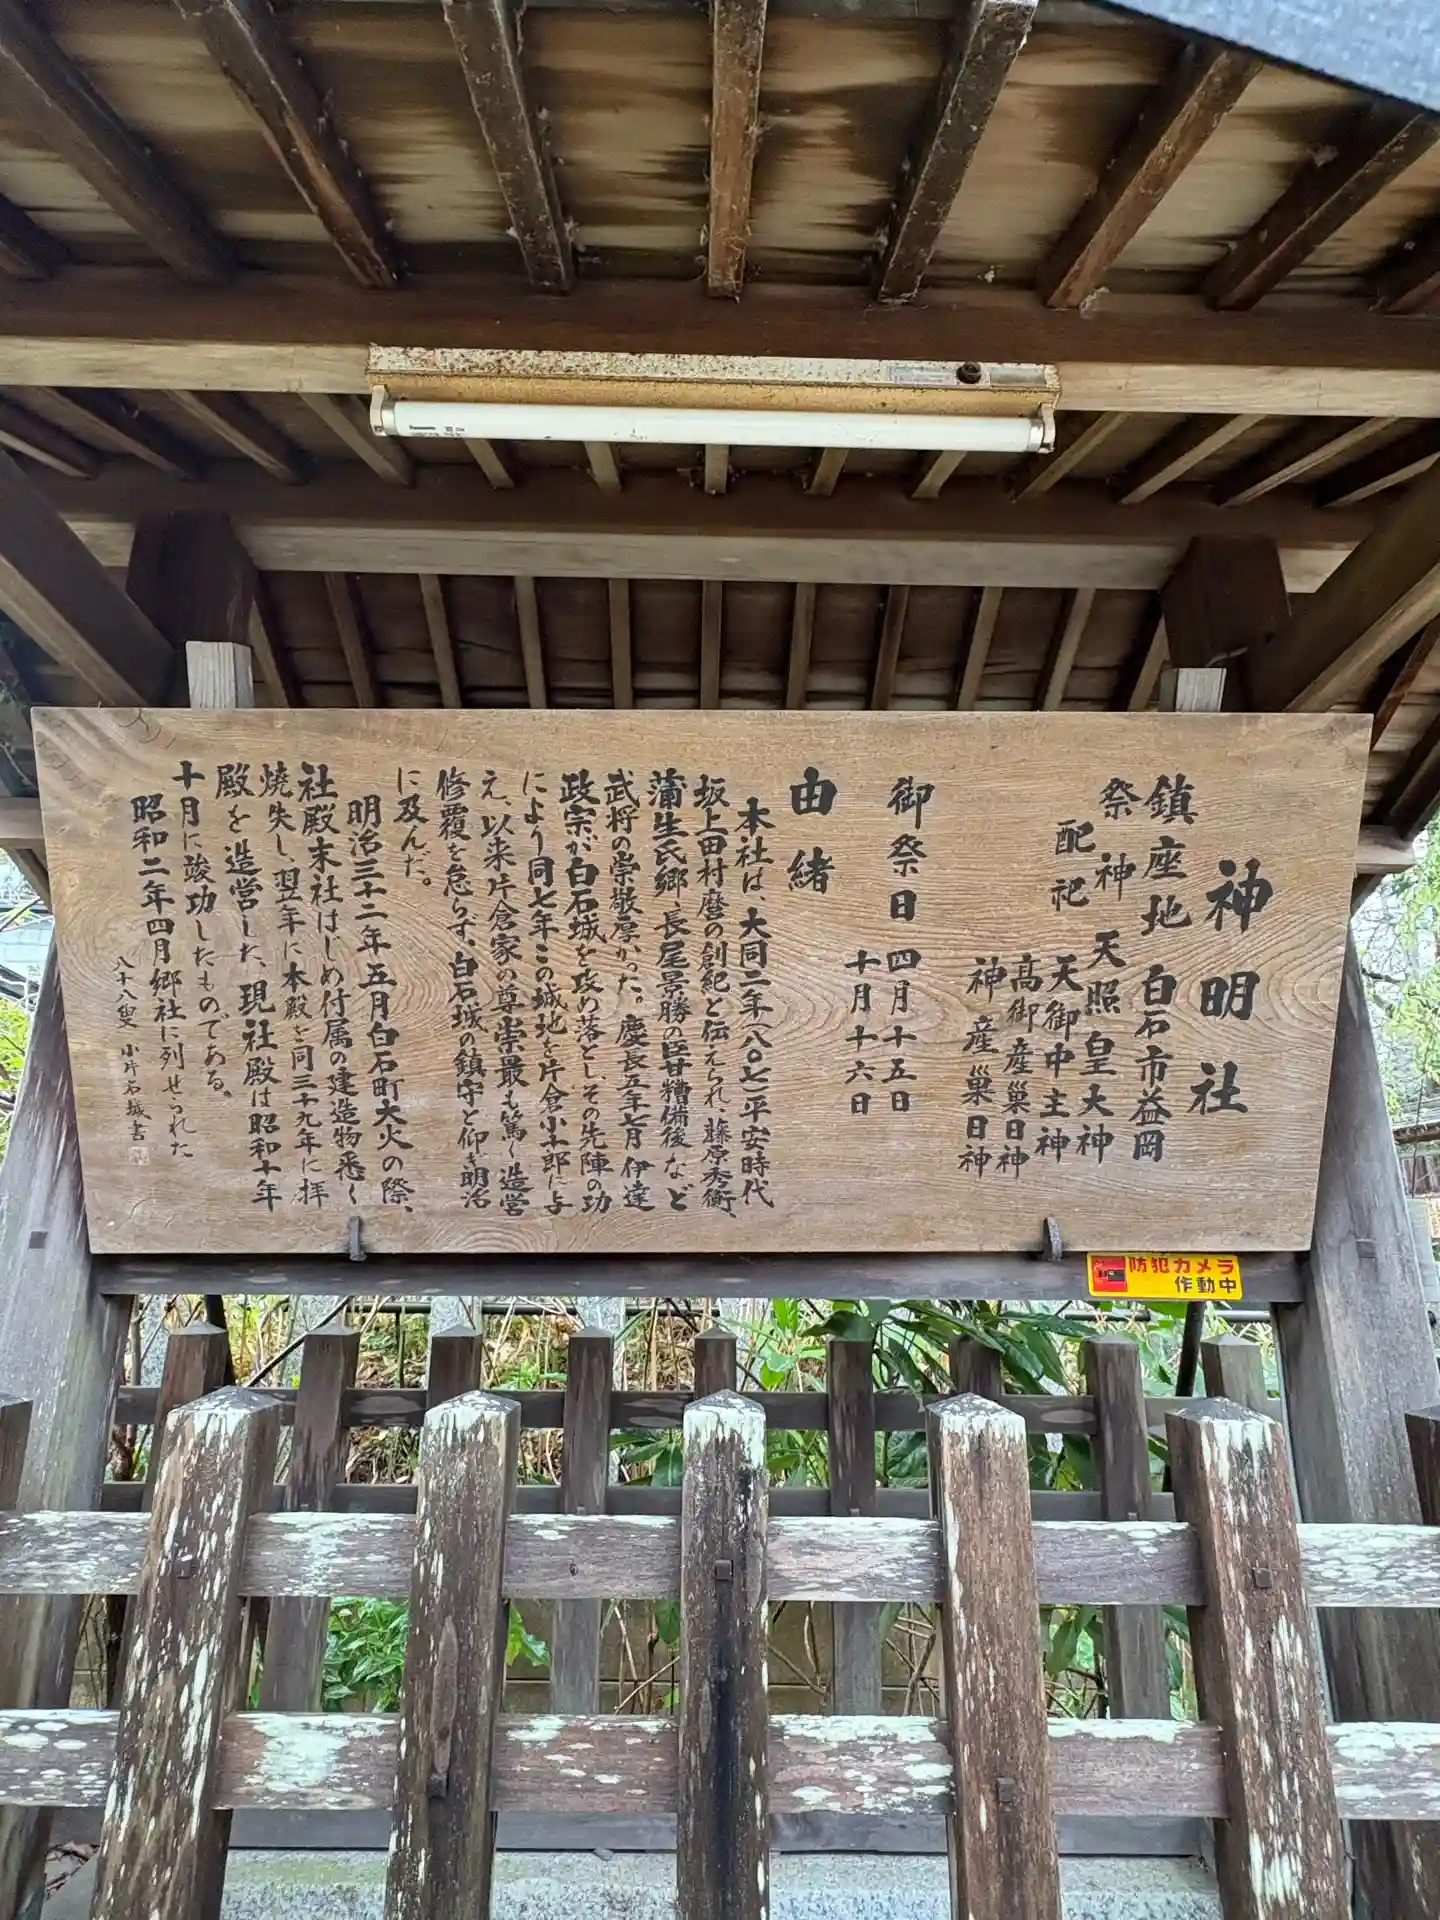 神明社
鎮座地 白石市益岡
祭神 天照皇大神
配祀 天御中主神
高御産巣日神
神産巣日神
御祭日 四月十五日
十月十六日
由緒
本社は、大同二年(八〇七)平安時代
坂上田村麿の創紀と伝えられ、藤原秀衡、
蒲生氏郷、長尾景勝の臣甘糟備後など
武将の崇敬厚かった。慶長五年七月伊達
政宗が白石城を攻め落とし、その先陣の功
により同七年この城地を片倉小十郎に与
え、以来片倉家の尊崇最も篤く造営
修覆を怠らず、白石城の鎮守と仰き明治
に及んだ。
明治三十二年五月白石町大火の際、
社殿末社はじめ付属の建造物悉く
焼失し、翌年に本殿を同三十九年に拝
殿を造営した、現社殿は昭和十年
十月に竣功したものである。
昭和二年四月郷社に列せられた
八十八叟 小片石城書
防犯カメラ
作動中